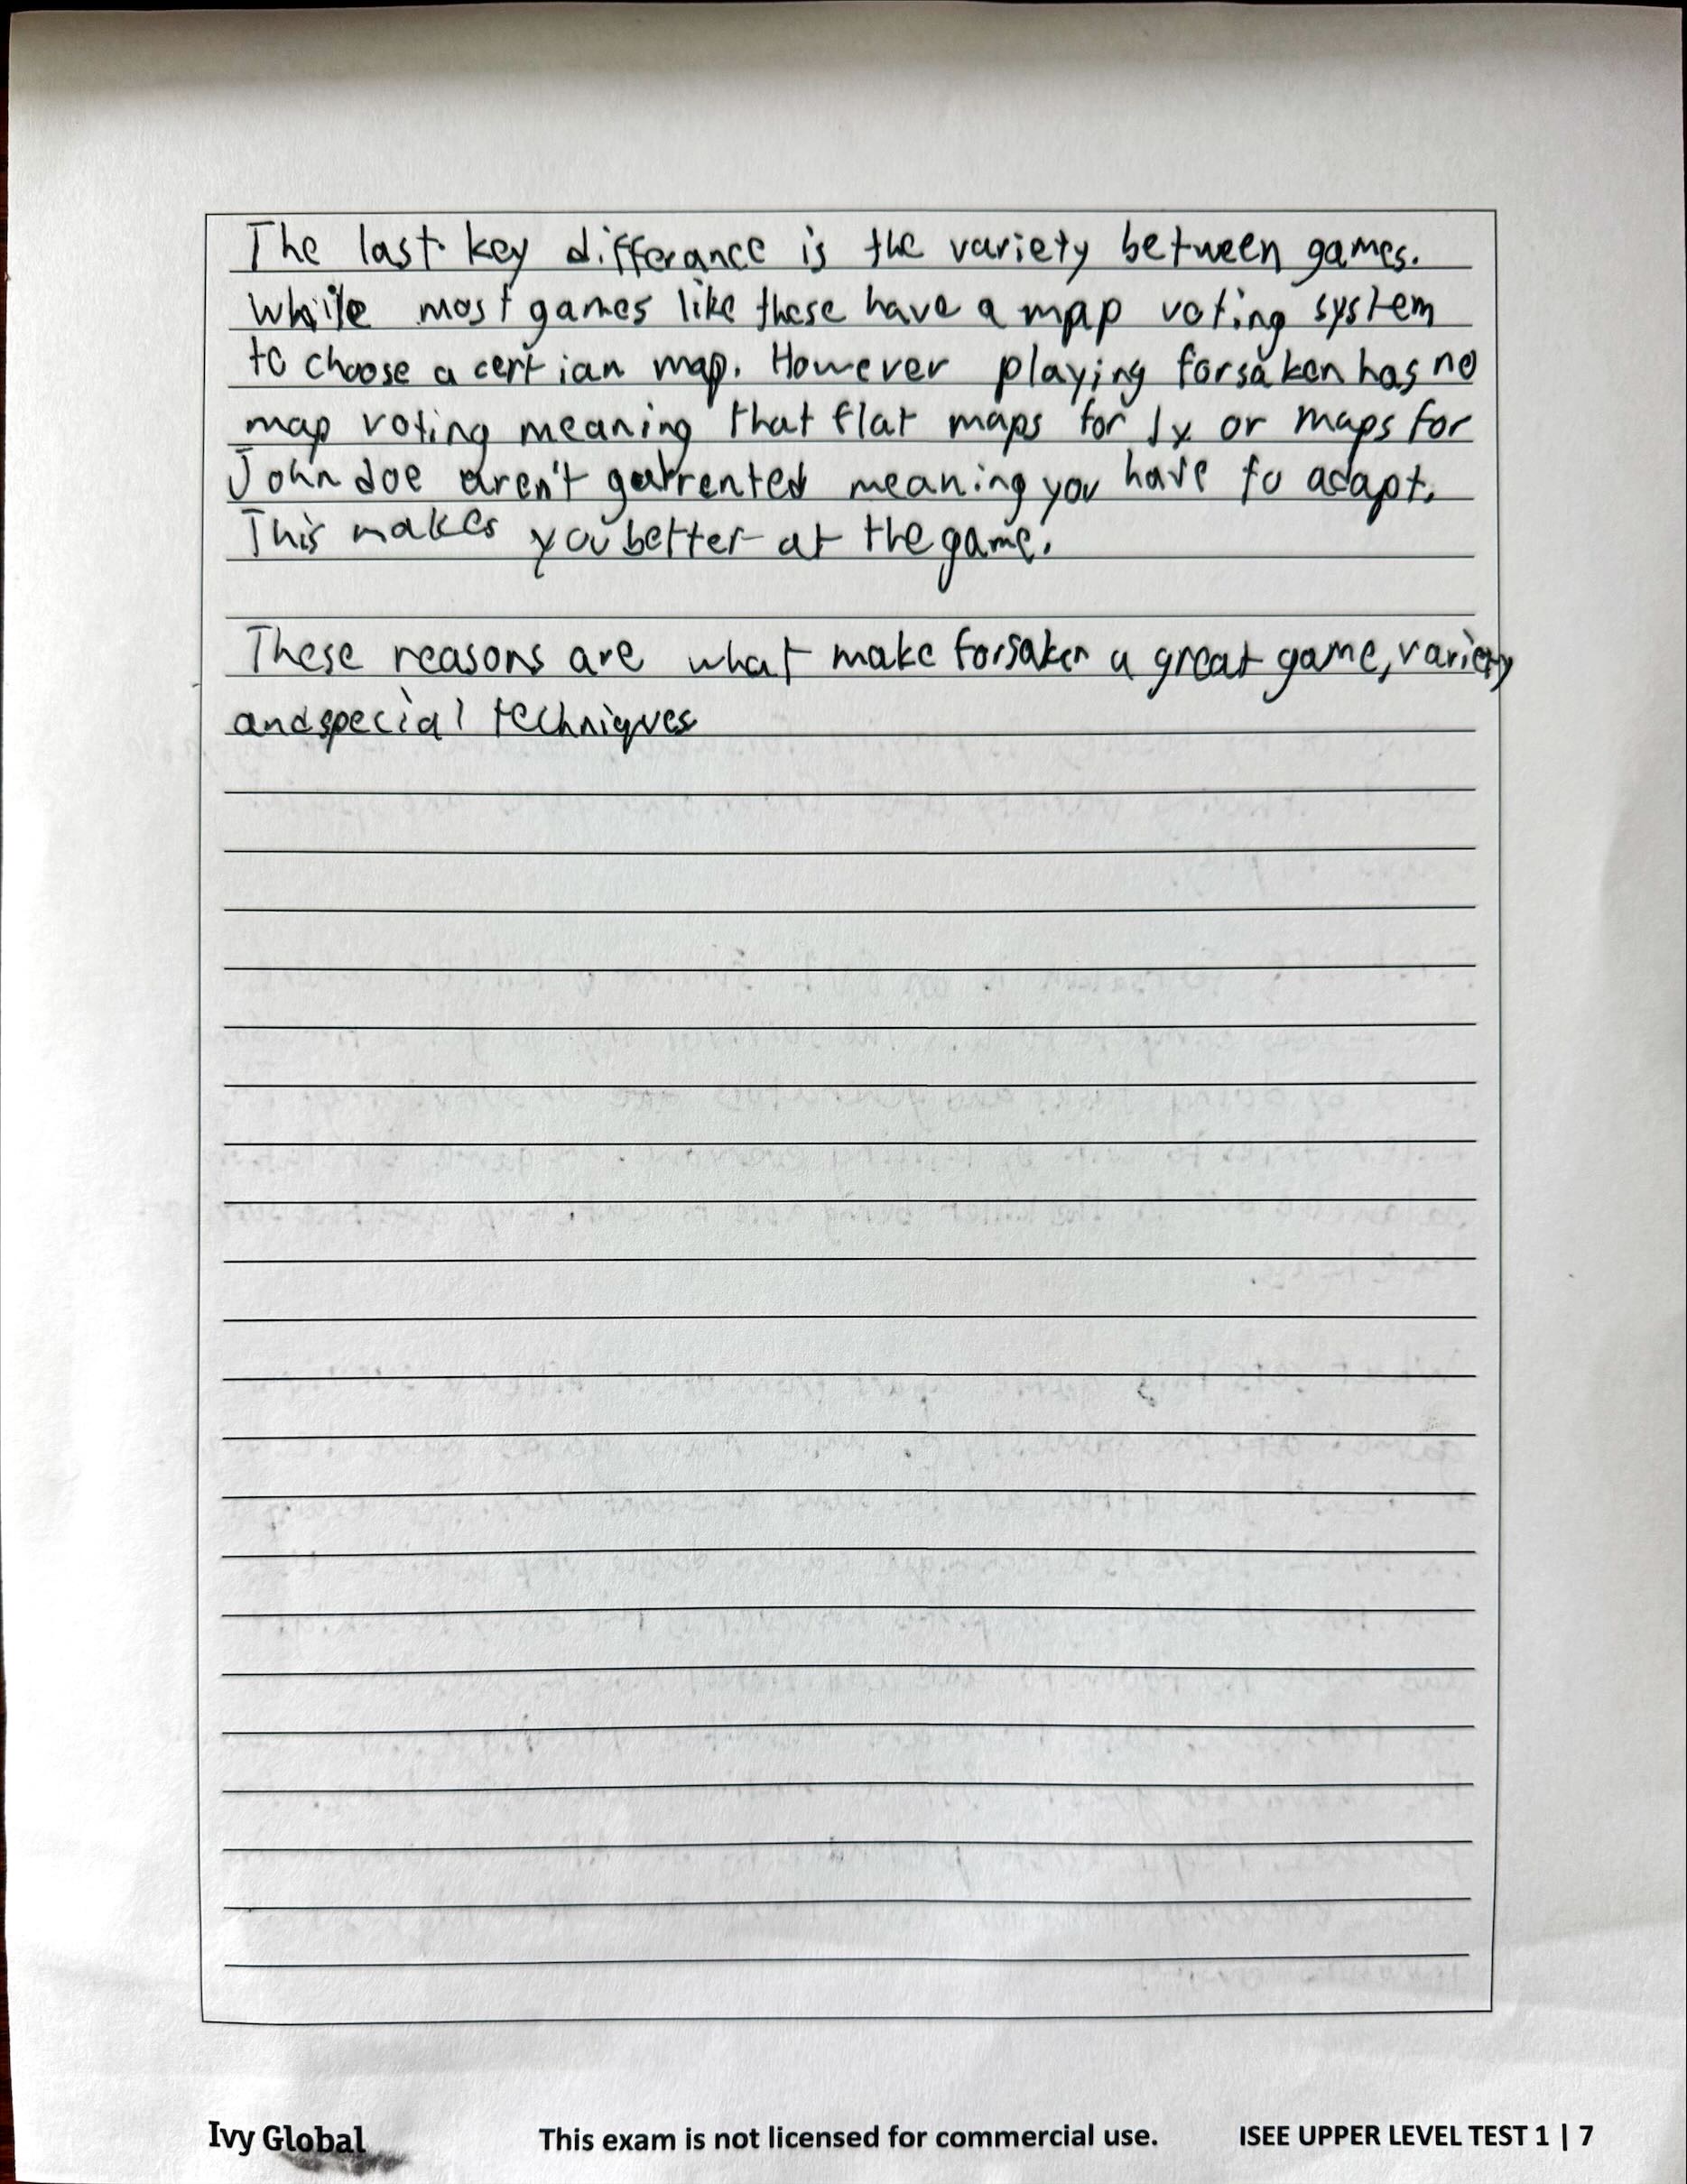 The last key differance is the variety between games.
While most games like these have a map voting system
to choose a certian map. However playing forsaken has no
map voting meaning that flat maps for 1x or maps for
John doe aren't gaurrented meaning you have to adapt.
This makes you better at the game.
These reasons are what make forsaken a great game, variety
and special techniques
Ivy Global
This exam is not licensed for commercial use.
ISEE UPPER LEVEL TEST 1 | 7